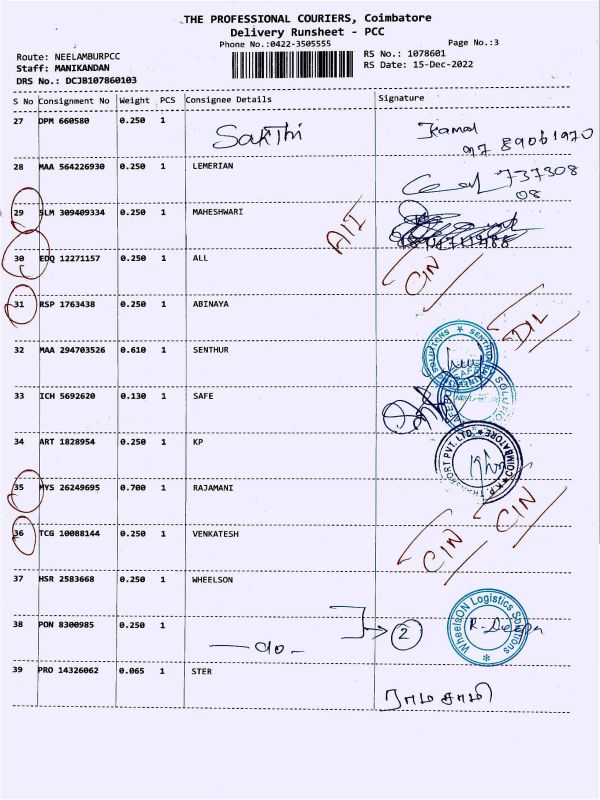 THE PROFESSIONAL COURIERS, Coimbatore
Delivery Runsheet - PCC
Phone No.:0422-3505555
Page No.:3
Route: NEELAMBURPCC
RS No.: 1078601
Staff: MANIKANDAN
RS Date: 15-Dec-2022
DRS No.: DCJB107860103
S No Consignment No Weight PCS Consignee Details Signature
27 DPM 660580 0.250 1 Sakthi Kamal
97 89061970
28 MAA 564226930 0.250 1 LEMERIAN 737308
08
29 SLM 309409334 0.250 1 MAHESHWARI AIT
30 EDQ 12271157 0.250 1 ALL CIN
31 RSP 1763438 0.250 1 ABINAYA DIL
32 MAA 294703526 0.610 1 SENTHUR
33 ICH 5692620 0.130 1 SAFE
34 ART 1828954 0.250 1 KP
K.P. TRANSPORT PVT. LTD. ★ COIMBATORE
35 MYS 26249695 0.700 1 RAJAMANI CIN
36 TCG 10088144 0.250 1 VENKATESH CIN
37 HSR 2583668 0.250 1 WHEELSON
WheelsON Logistics Solutions
38 PON 8300985 0.250 1 -do- 2 R. Deepa
39 PRO 14326062 0.065 1 STER ராமசாமி